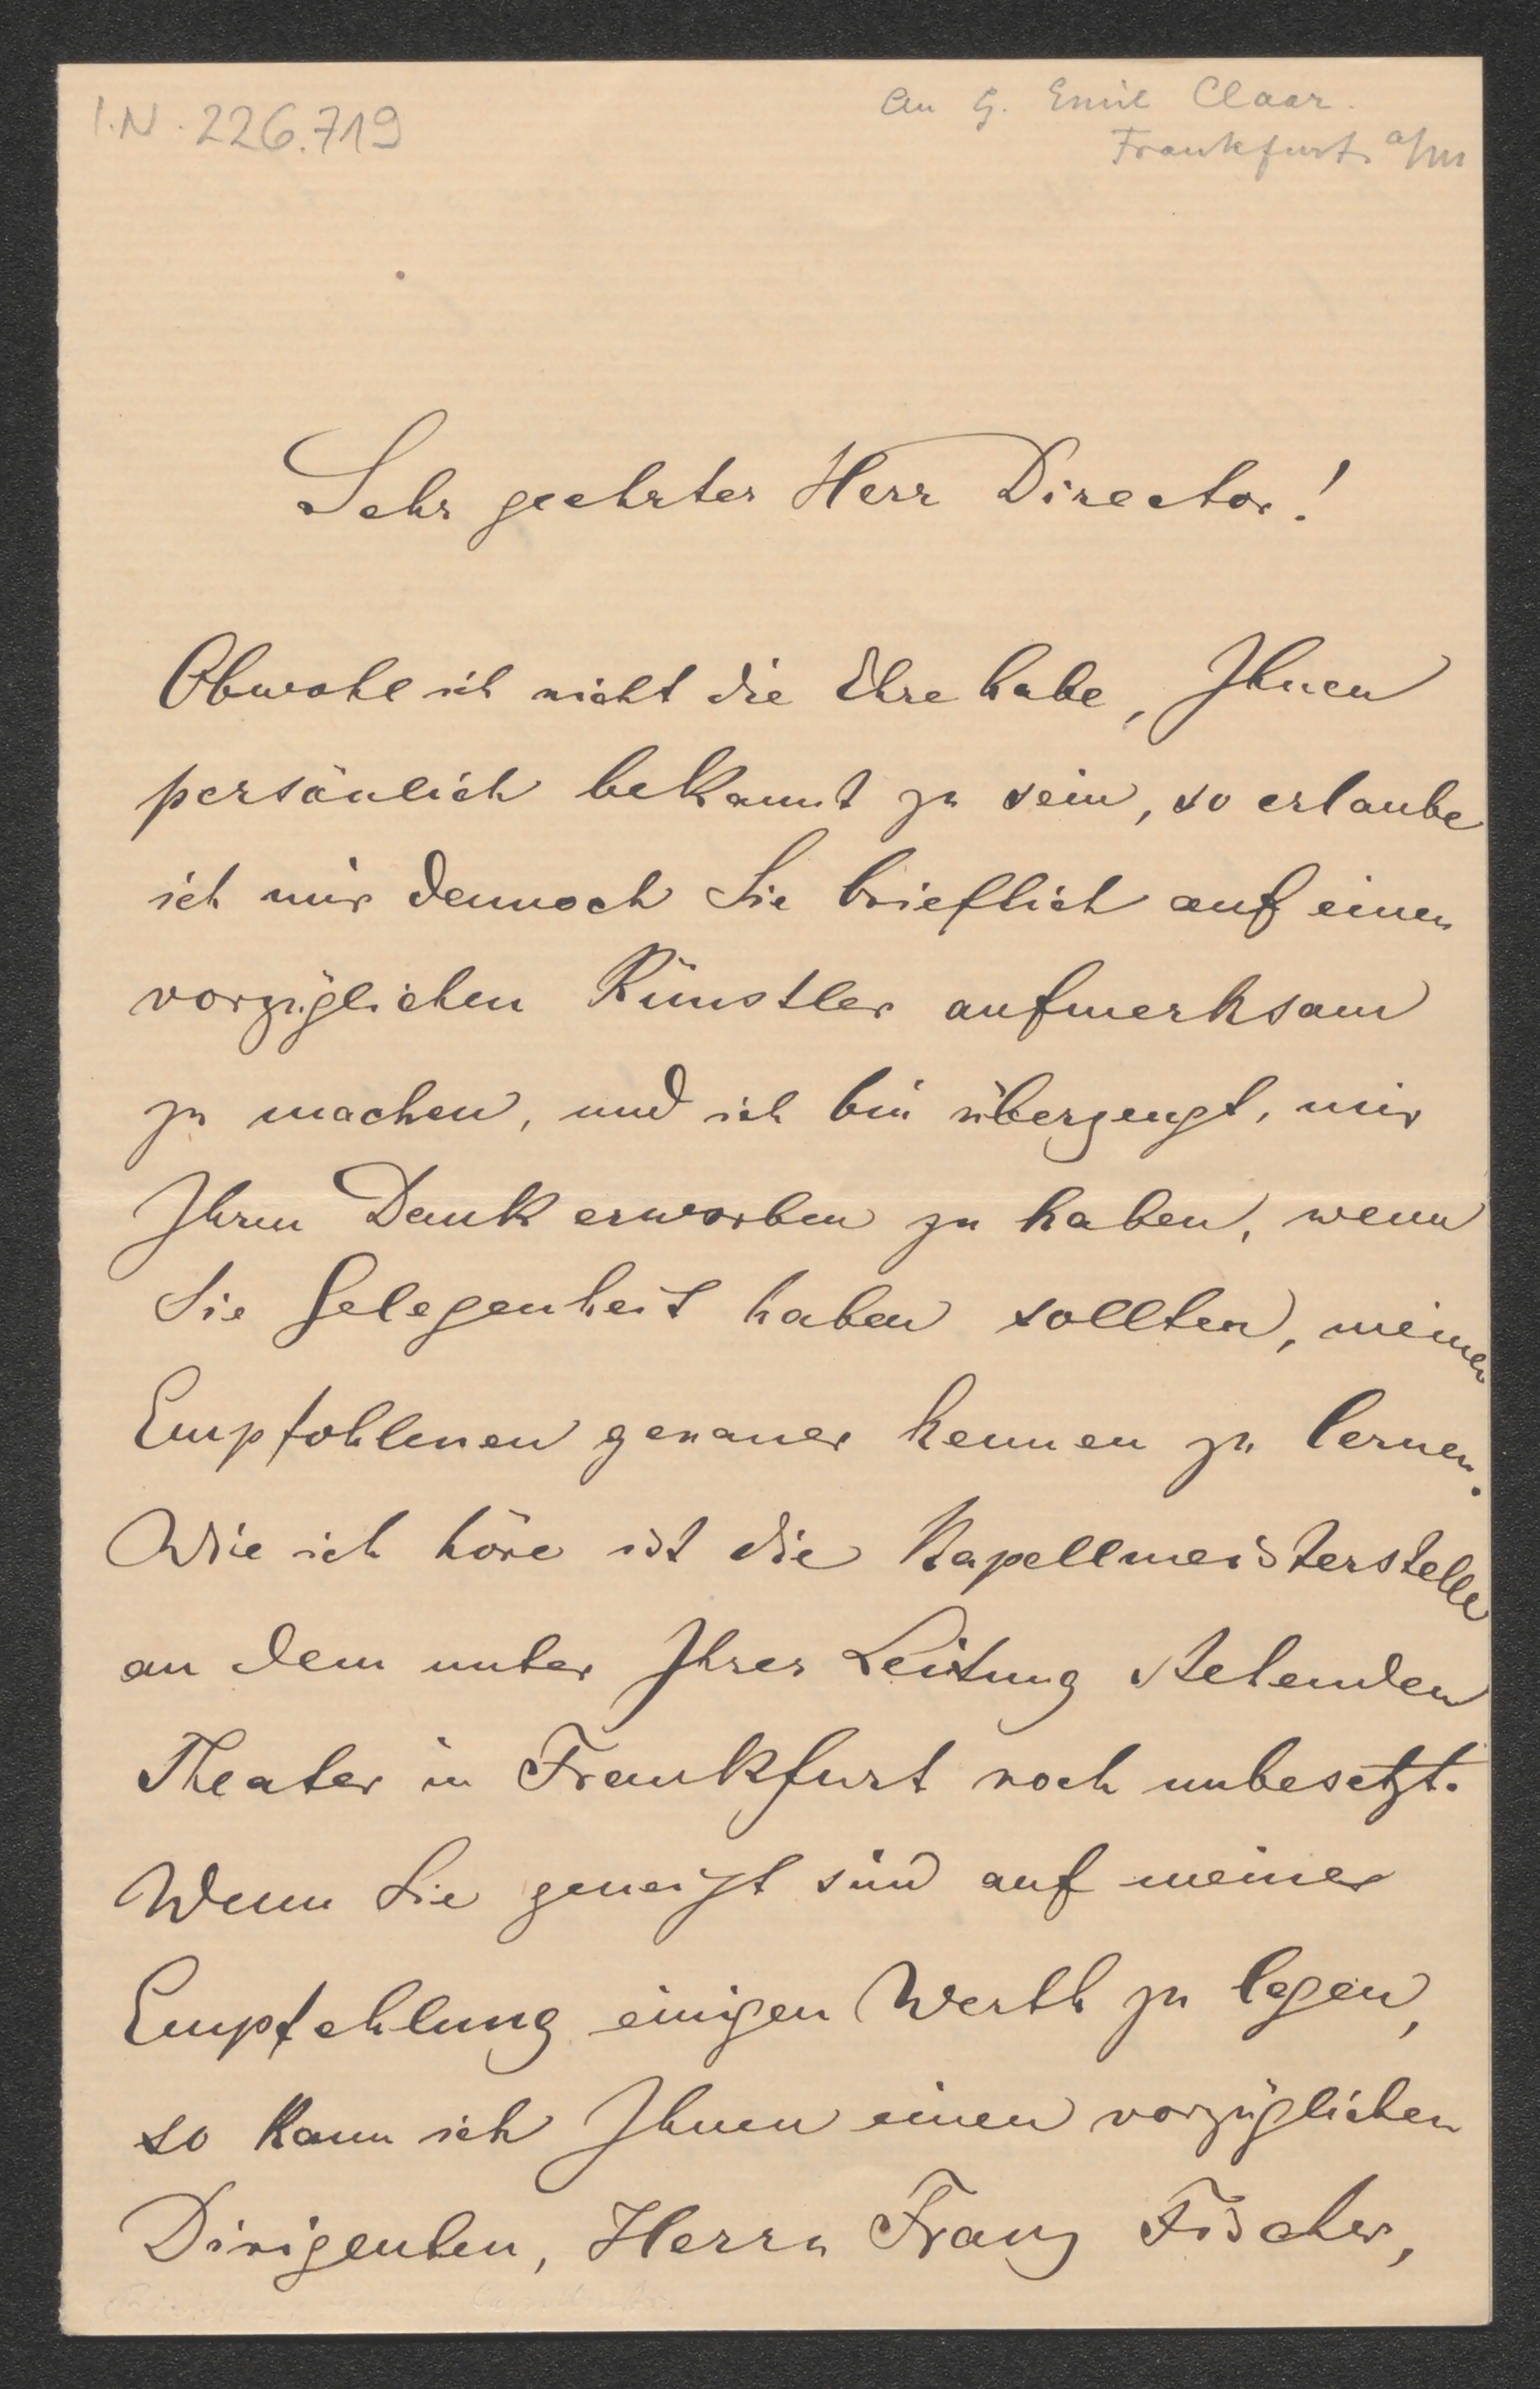 I.N. 226.719
An G. Emil Claar.
Frankfurt a/M
Sehr geehrter Herr Director!
Obwohl ich nicht die Ehre habe, Ihnen
persönlich bekannt zu sein, so erlaube
ich mir dennoch Sie brieflich auf einen
vorzüglichen Künstler aufmerksam
zu machen, und ich bin überzeugt, mir
Ihren Dank erworben zu haben, wenn
Sie Gelegenheit haben sollten, meinen
Empfohlenen genauer kennen zu lernen.
Wie ich höre ist die Kapellmeisterstelle
an dem unter Ihrer Leitung stehenden
Theater in Frankfurt noch unbesetzt.
Wenn Sie geneigt sind auf meine
Empfehlung einigen Werth zu legen,
so kann ich Ihnen einen vorzüglichen
Dirigenten, Herrn Franz Fischer,